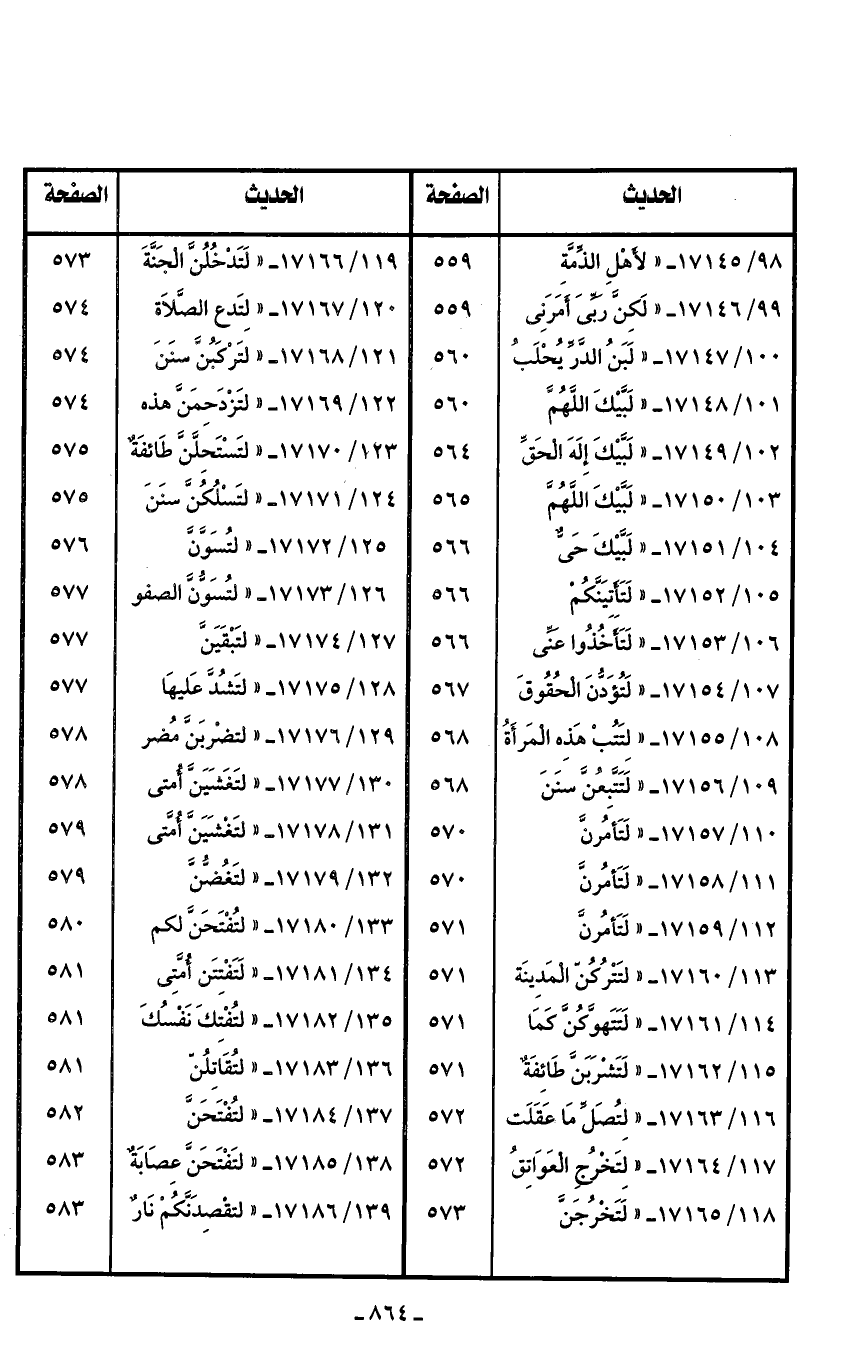 الحديث الصفحة الحديث الصفحة
٩٨/ ١٧١٤٥ـ « لأَهْلِ الذِّمَّةِ ٥٥٩ ١١٩/ ١٧١٦٦ـ « لَتَدْخُلُنَّ الْجَنَّةَ ٥٧٣
٩٩/ ١٧١٤٦ـ « لَكِنَّ رَبِّىَ أَمَرَنِى ٥٥٩ ١٢٠/ ١٧١٦٧ـ « لِتَدع الصَّلاَةَ ٥٧٤
١٠٠/ ١٧١٤٧ـ « لَبَنُ الدَّرِّ يُحْلَبُ ٥٦٠ ١٢١/ ١٧١٦٨ـ « لَتَرْكَبُنَّ سنَنَ ٥٧٤
١٠١/ ١٧١٤٨ـ « لَبَّيْكَ اللَّهُمَّ ٥٦٠ ١٢٢/ ١٧١٦٩ـ « لَتَزْدَحِمَنَّ هذه ٥٧٤
١٠٢/ ١٧١٤٩ـ « لَبَّيْكَ إِلَهَ الْحَقِّ ٥٦٤ ١٢٣/ ١٧١٧٠ـ « لَتَسْتَحِلَّنَّ طَائفَةٌ ٥٧٥
١٠٣/ ١٧١٥٠ـ « لَبَّيْكَ اللَّهُمَّ ٥٦٥ ١٢٤/ ١٧١٧١ـ « لَتَسْلُكُنَّ سنَنَ ٥٧٥
١٠٤/ ١٧١٥١ـ « لَبَّيْكَ حَىٌّ ٥٦٦ ١٢٥/ ١٧١٧٢ـ « لَتُسَوَّنَّ ٥٧٦
١٠٥/ ١٧١٥٢ـ « لَتَأتِيَنَّكُمْ ٥٦٦ ١٢٦/ ١٧١٧٣ـ « لَتُسَوُّنَّ الصفو ٥٧٧
١٠٦/ ١٧١٥٣ـ « لَتَأخُذُوا عَنِّى ٥٦٦ ١٢٧/ ١٧١٧٤ـ « لَتَبْقَيَنَّ ٥٧٧
١٠٧/ ١٧١٥٤ـ « لَتُؤَدُّنَ الْحُقُوقَ ٥٦٧ ١٢٨/ ١٧١٧٥ـ « لتَشُدَّ عَلَيهَا ٥٧٧
١٠٨/ ١٧١٥٥ـ « لِتَتُبْ هَذِهِ الْمَرأَةُ ٥٦٨ ١٢٩/ ١٧١٧٦ـ « لتضْرِبَنَّ مُضر ٥٧٨
١٠٩/ ١٧١٥٦ـ « لَتَتَّبِعُنَّ سنَنَ ٥٦٨ ١٣٠/ ١٧١٧٧ـ « لَتَغَشَيَنَّ أُمتى ٥٧٨
١١٠/ ١٧١٥٧ـ « لَتَأمُرنَّ ٥٧٠ ١٣١/ ١٧١٧٨ـ « لَتَغْشَيَنَّ أُمَّتى ٥٧٩
١١١/ ١٧١٥٨ـ « لَتَأمُرنَّ ٥٧٠ ١٣٢/ ١٧١٧٩ـ « لَتَغُضُّنَّ ٥٧٩
١١٢/ ١٧١٥٩ـ « لَتَأمُرنَّ ٥٧١ ١٣٣/ ١٧١٨٠ـ « لَتُفْتَحَنَّ لكم ٥٨٠
١١٣/ ١٧١٦٠ـ « لَتَتْرُكُنّ الْمَدينَة ٥٧١ ١٣٤/ ١٧١٨١ـ « لَتَفْتِنَن أُمَّتِى ٥٨١
١١٤/ ١٧١٦١ـ « لَتَتَهوَّكُنَّ كَمَا ٥٧١ ١٣٥/ ١٧١٨٢ـ « لَتُفْتكَ نَفْسُكَ ٥٨١
١١٥/ ١٧١٦٢ـ « لَتَشْرَبَنَّ طَائفَةٌ ٥٧١ ١٣٦/ ١٧١٨٣ـ « لَتُقَاتِلُنّ ٥٨١
١١٦/ ١٧١٦٣ـ « لِتُصَلِّ مَا عَقَلَت ٥٧٢ ١٣٧/ ١٧١٨٤ـ « لَتُفْتَحَنَّ ٥٨٢
١١٧/ ١٧١٦٤ـ « لِتَخْرُجِ الْعَوَاتِقُ ٥٧٢ ١٣٨/ ١٧١٨٥ـ « لَتَفْتَحَنَّ عِصَابَةٌ ٥٨٣
١١٨/ ١٧١٦٥ـ « لَتَخْرُجَنَّ ٥٧٣ ١٣٩/ ١٧١٨٦ـ « لتقْصِدَنَّكُمْ نَارٌ ٥٨٣
ـ ٨٦٤ ـ